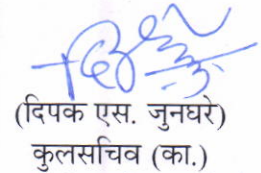 (दिपक एस. जुनघरे)
कुलसचिव (का.)